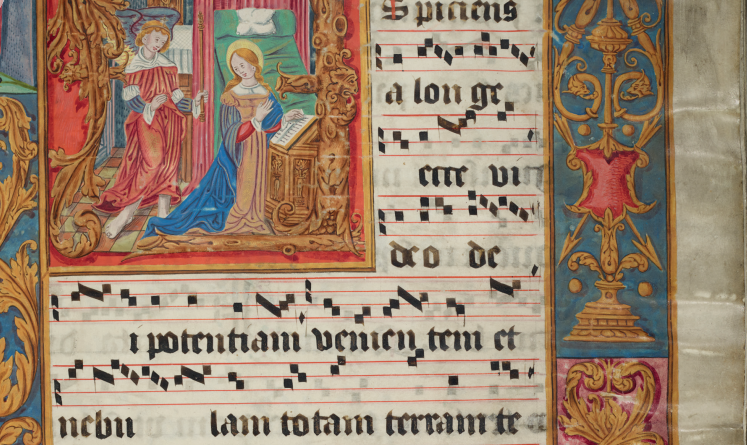 Spiciens
a lon ge
ecce vi
deo de
i potentiam venien tem et
nebu lam totam terram te